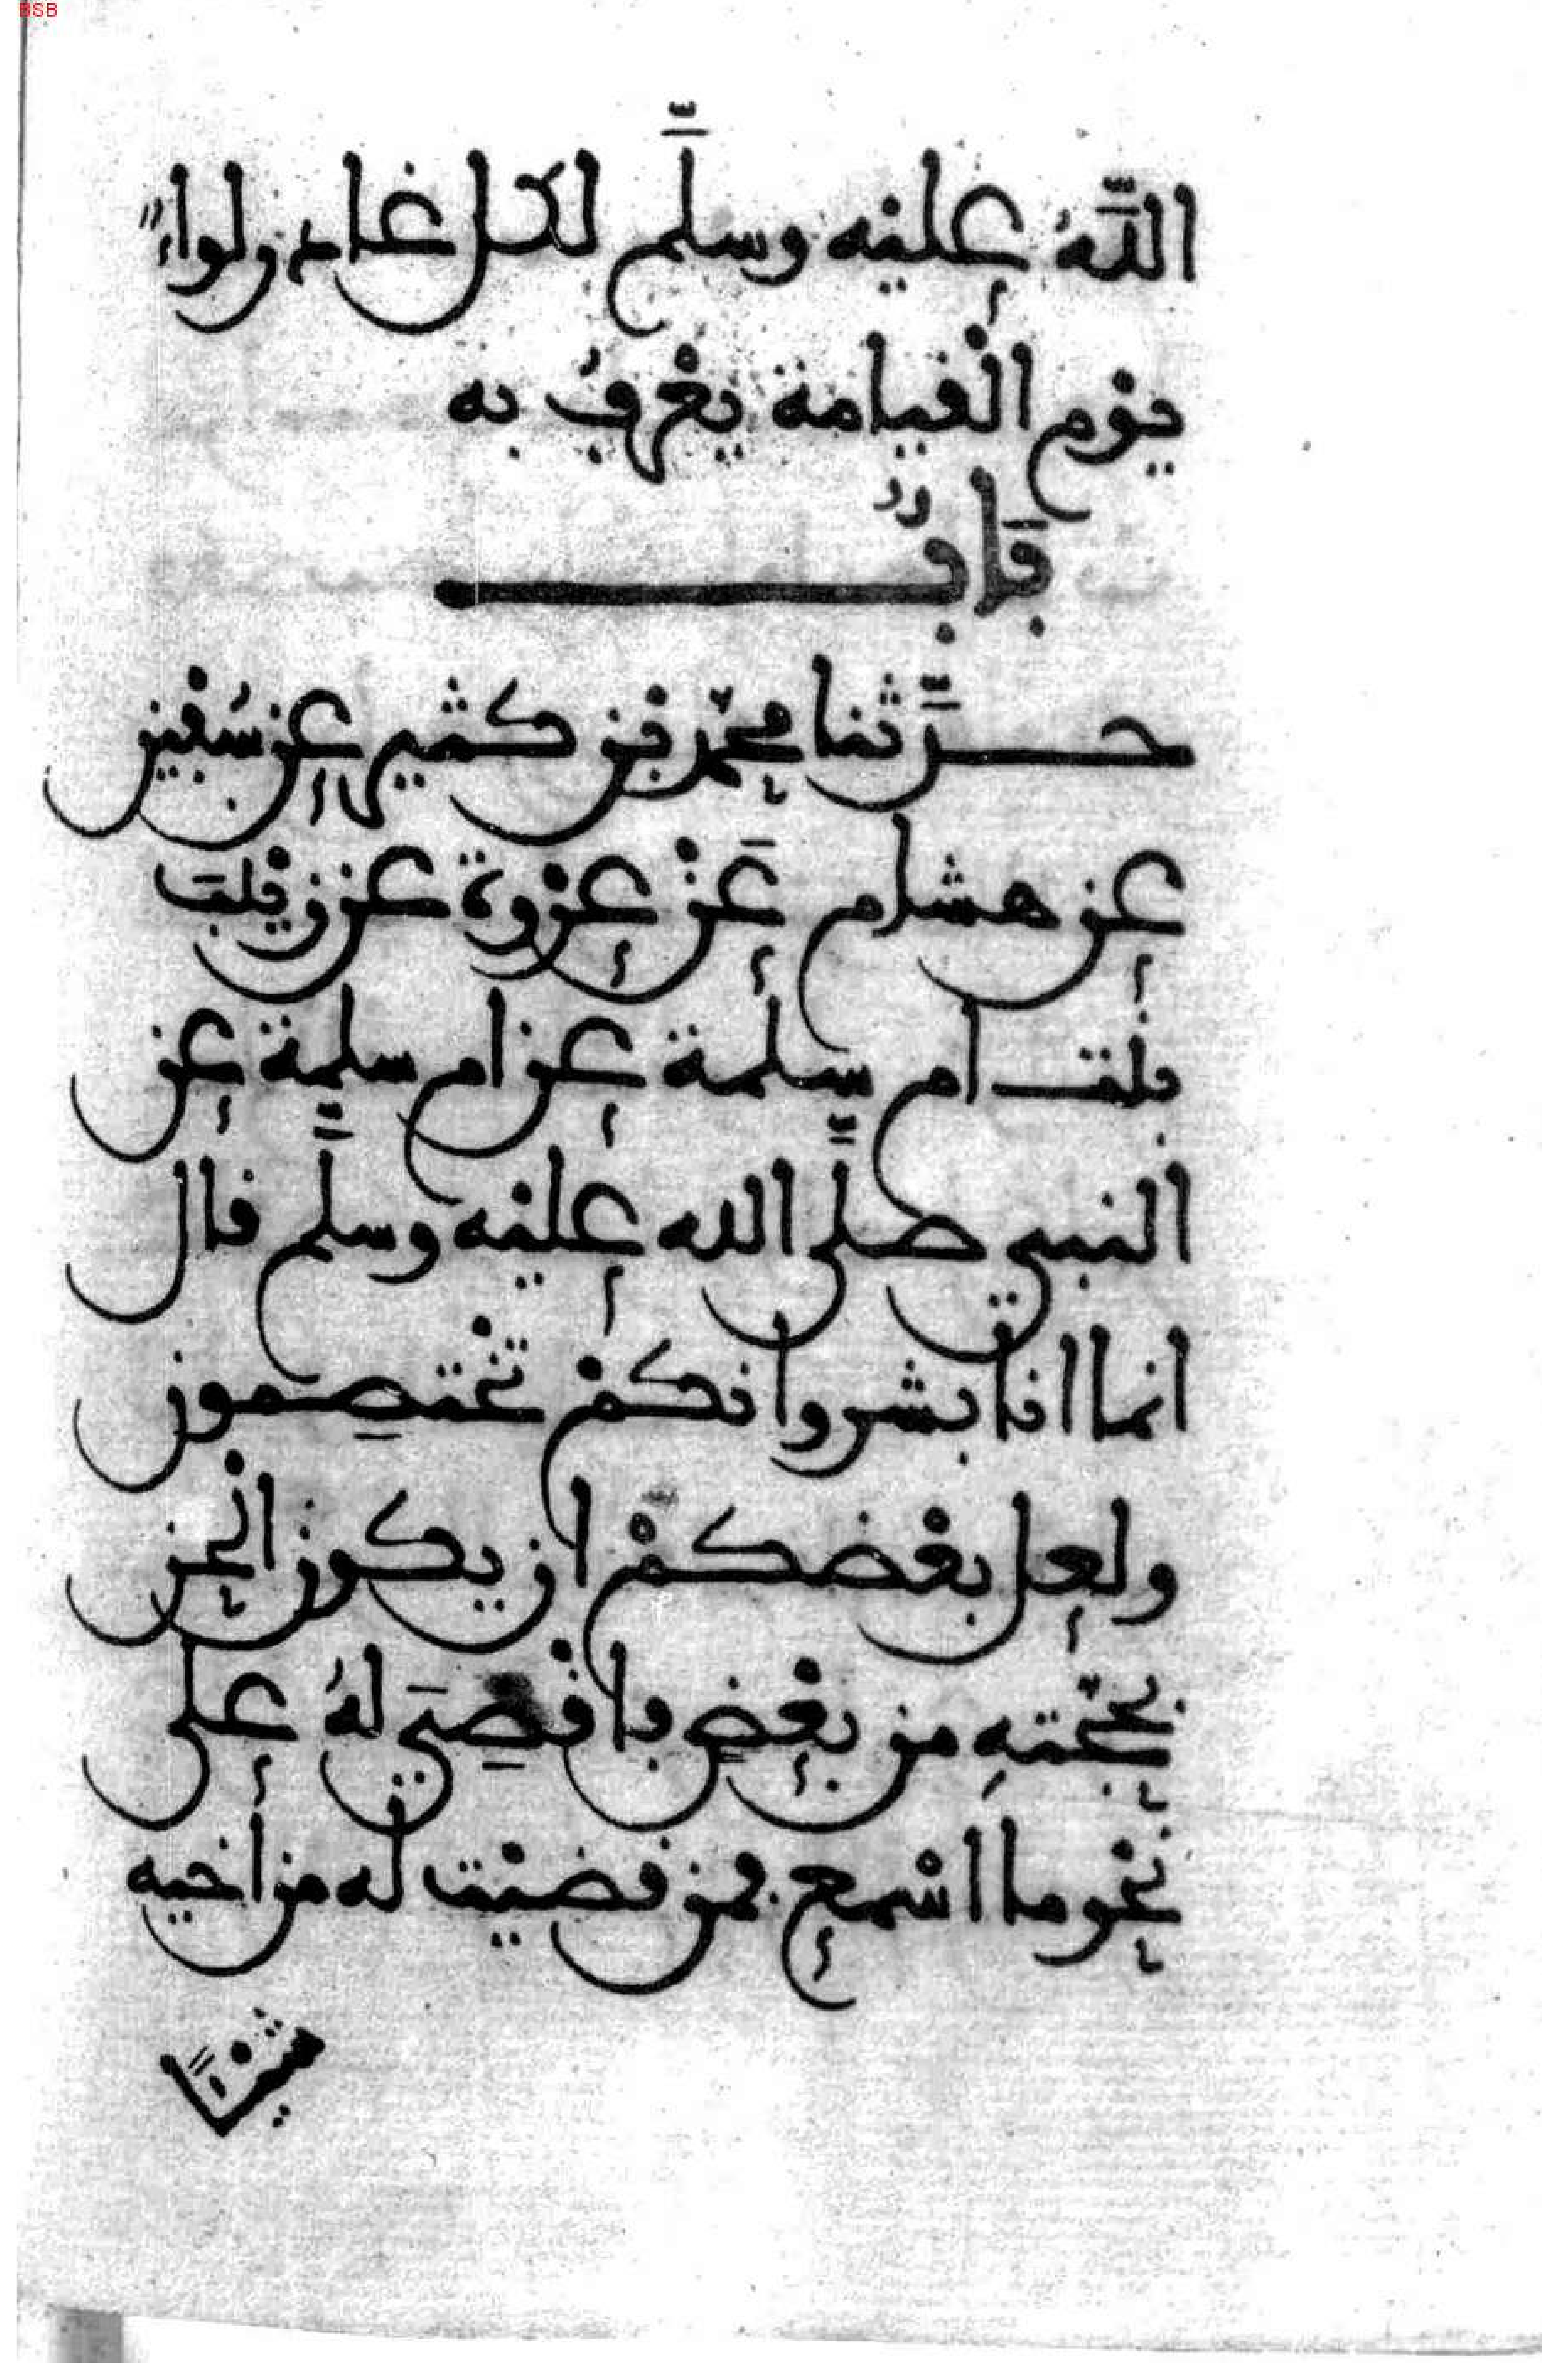 BSB
اللَّهُ عليْه وسلَّم لكل غادر لواء
يوْم الْقيامة يعْرفُ به
بَابٌ
حدَّثنا محمّد بْن كثير عن سُفْين
عن هشام عَنْ عرْوة عن زيْنبَ
بنت ام سلمة عن ام سلمة عن
النبي صلَّى الله عليْه وسلَّم قال
انما انا بشر وانكمْ تخْتصِمون
ولعل بعْضكمْ ان يكون الْحن
بحجّتهِ من بعْضٍ فاقْضِيَ لهُ على
نحْو ما اسْمع فمن قضيْت له من اخيه
شيْـًٔا